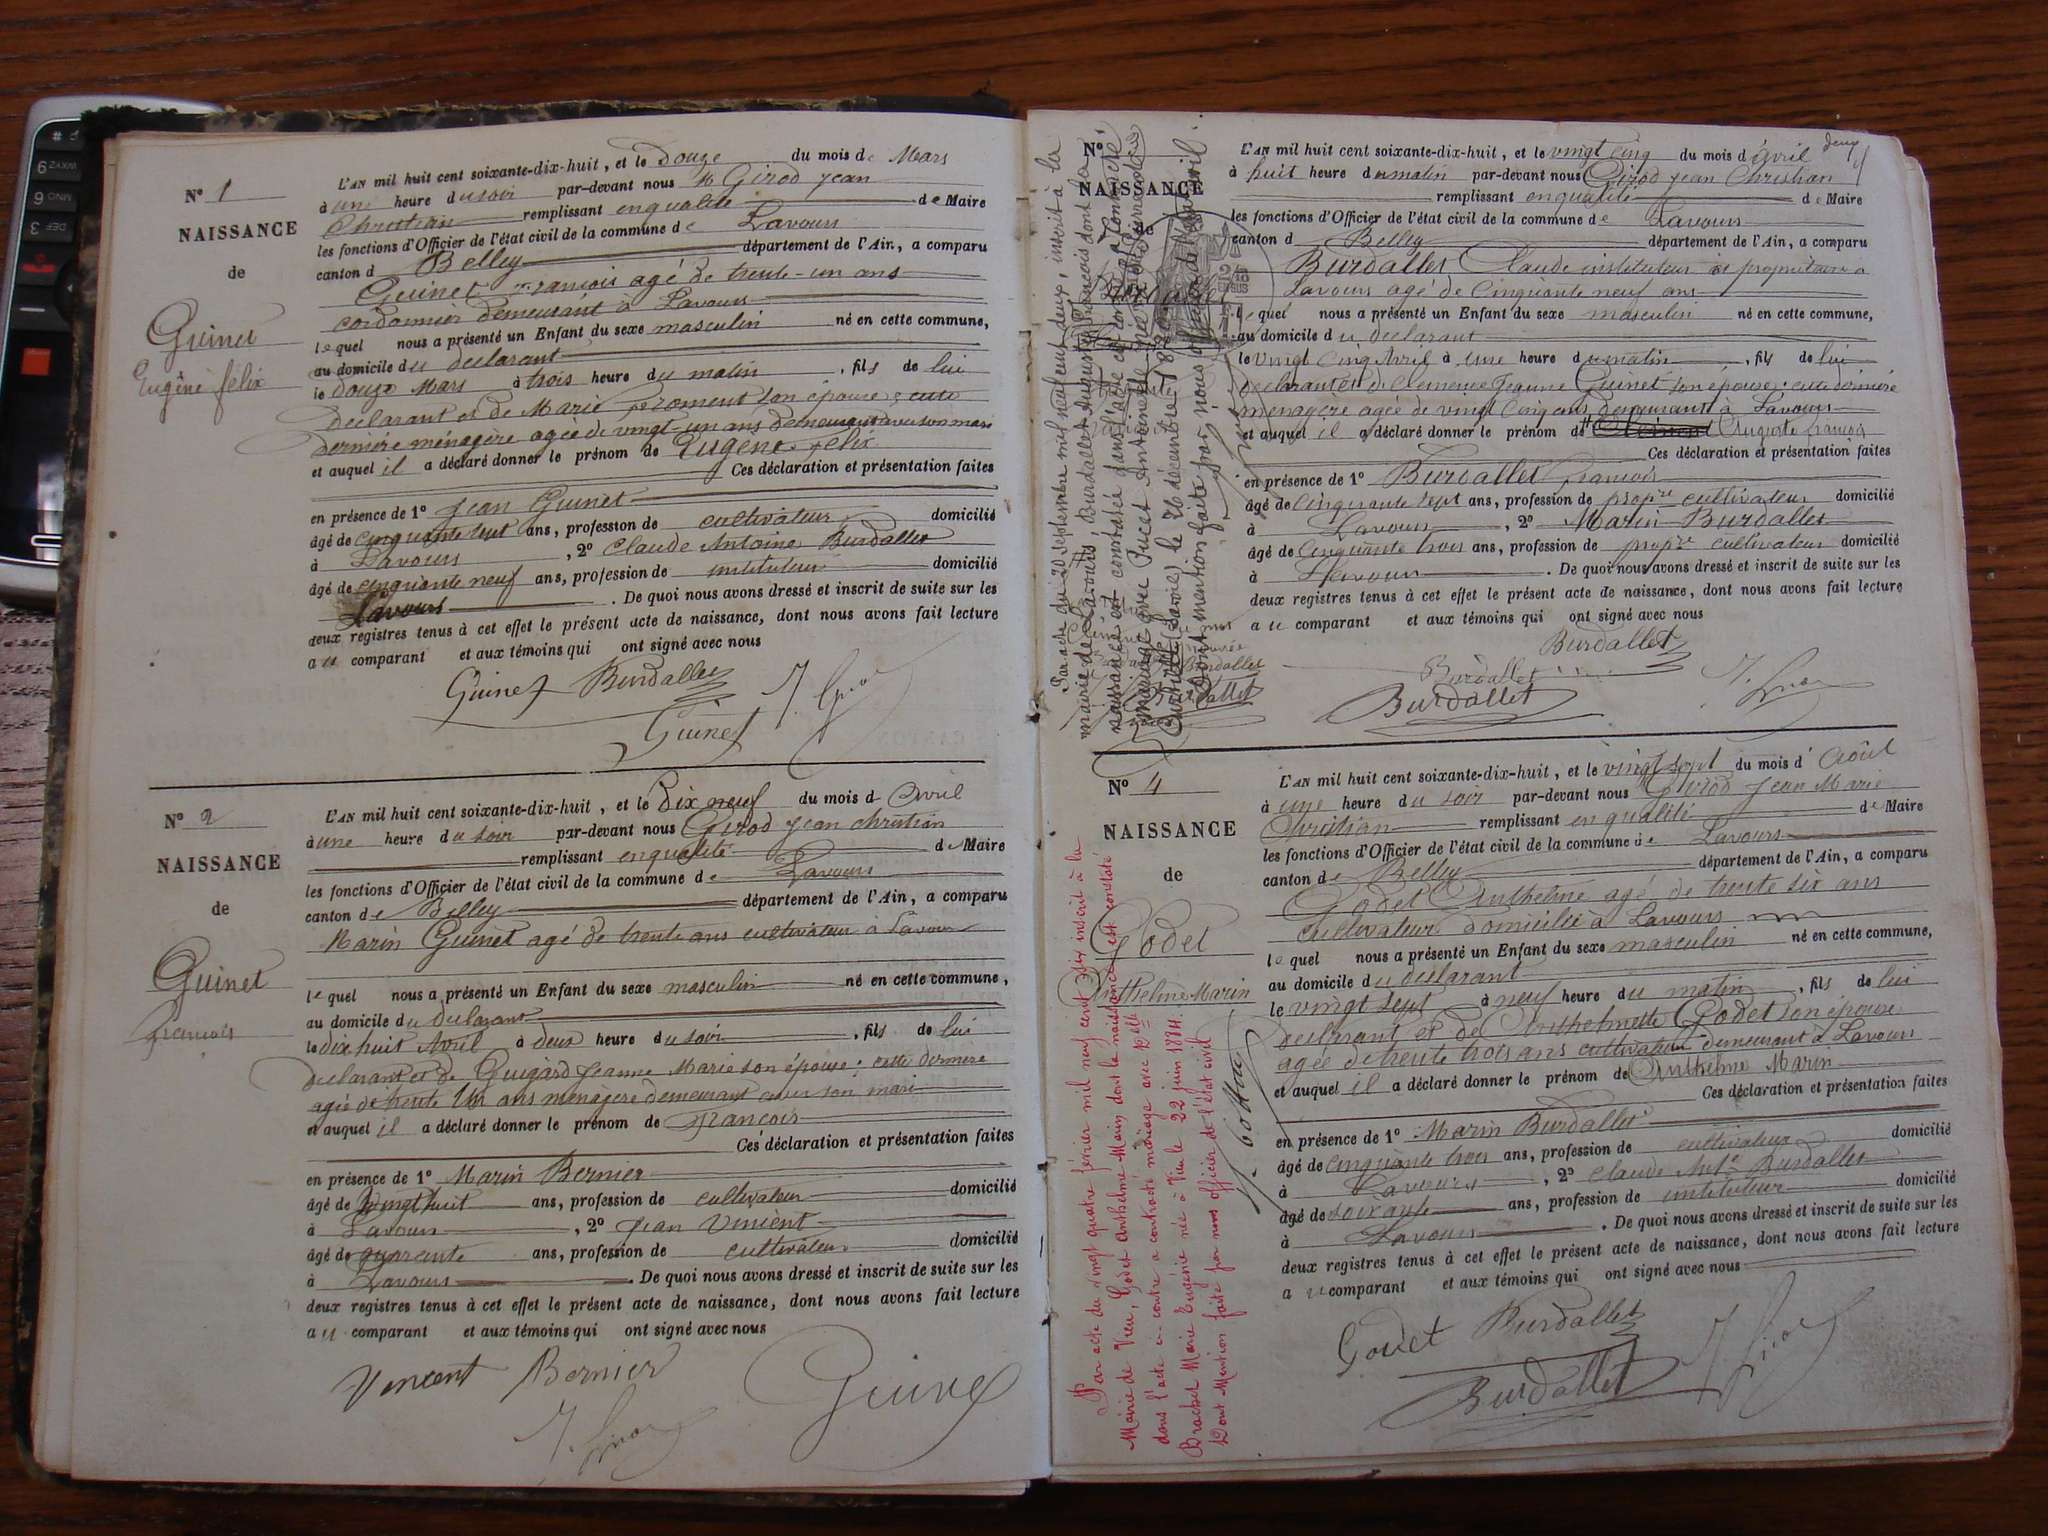 N° 1
NAISSANCE
de
Guinet
Eugène félix
L'AN mil huit cent soixante-dix-huit, et le Douze du mois de Mars
à une heure du soir par-devant nous Girod Jean
Christian remplissant en qualité de Maire
les fonctions d'Officier de l'état civil de la commune de Lavours
canton d Belley département de l'Ain, a comparu
Guinet francois agé de trente-un ans
cordonnier demeurant à Lavours
lequel nous a présenté un Enfant du sexe masculin né en cette commune,
au domicile du déclarant
le douze Mars à trois heure du matin, fils de lui
declarant et de Marie son épouse; cette
dernière ménagère agée de vingt-un ans demeurant avec son mari
et auquel il a déclaré donner le prénom de Eugène félix
Ces déclaration et présentation faites
en présence de 1° Jean Guinet
âgé de cinquante sept ans, profession de cultivateur domicilié
à Lavours, 2° Claude Antoine Burdallet
âgé de cinquante neuf ans, profession de instituteur domicilié
Lavours. De quoi nous avons dressé et inscrit de suite sur les
deux registres tenus à cet effet le présent acte de naissance, dont nous avons fait lecture
au comparant et aux témoins qui ont signé avec nous
Guinet Burdallet J. Girod
Guinet
N° 2
NAISSANCE
de
Guinet
francois
L'AN mil huit cent soixante-dix-huit, et le Dix neuf du mois d Avril
à une heure du soir par-devant nous Girod Jean christian
remplissant en qualité de Maire
les fonctions d'Officier de l'état civil de la commune de Lavours
canton de Belley département de l'Ain, a comparu
Marin Guinet agé de trente ans cultivateur à Lavours
lequel nous a présenté un Enfant du sexe masculin né en cette commune,
au domicile du déclarant
le dix huit Avril à deux heure du soir, fils de lui
declarant et de Guigard Jeanne Marie son épouse; cette dernière
agée de trente Un ans ménagère demeurant avec son mari
et auquel il a déclaré donner le prénom de francois
Ces déclaration et présentation faites
en présence de 1° Marin Bernier
âgé de vingt huit ans, profession de cultivateur domicilié
à Lavours, 2° Jean Vincent
âgé de quarante ans, profession de cultivateur domicilié
à Lavours. De quoi nous avons dressé et inscrit de suite sur les
deux registres tenus à cet effet le présent acte de naissance, dont nous avons fait lecture
au comparant et aux témoins qui ont signé avec nous
Vincent Bernier Guinet
J. Girod
deux
N° 3
NAISSANCE
de
Par acte du 20 septembre mil neuf cent deux, inscrit à la
mairie de Lavours, Burdallet Auguste francois dont la
naissance est constatée dans l'acte ci-contre, a contracté
mariage avec Pucet Antoinette née à
(Savoie) le 26 décembre
Dont mention faite par nous officier de l'état civil.
L'AN mil huit cent soixante-dix-huit, et le vingt cinq du mois d'avril
à huit heure du matin par-devant nous Girod Jean Christian
remplissant en qualité de Maire
les fonctions d'Officier de l'état civil de la commune de Lavours
canton d Belley département de l'Ain, a comparu
Burdallet Claude instituteur et propriétaire à
Lavours agé de Cinquante neuf ans
lequel nous a présenté un Enfant du sexe masculin né en cette commune,
au domicile du déclarant
le vingt cinq Avril à une heure du matin, fils de lui
declarant et de Clémence Jeanne Guinet son épouse; cette dernière
menagère agée de vingt cinq ans demeurant à Lavours
et auquel il a déclaré donner le prénom de Auguste francois
Ces déclaration et présentation faites
en présence de 1° Burdallet francois
âgé de cinquante sept ans, profession de propre cultivateur domicilié
à Lavours, 2° Marin Burdallet
âgé de cinquante trois ans, profession de propre cultivateur domicilié
à Lavours. De quoi nous avons dressé et inscrit de suite sur les
deux registres tenus à cet effet le présent acte de naissance, dont nous avons fait lecture
au comparant et aux témoins qui ont signé avec nous
Burdallet
Burdallet J. Girod
Burdallet
N° 4
NAISSANCE
de
Godet
Anthelme Marin
Par acte du vingt quatre février mil neuf cent dix inscrit à la
Mairie de Vieu, Godet Anthelme Marin dont la naissance est constatée
dans l'acte ci-contre a contracté mariage avec Delle
Brachet Marie Eugénie née à Vieu le 22 juin 1884.
Dont Mention faite par nous officier de l'état civil
L'AN mil huit cent soixante-dix-huit, et le vingt sept du mois d'Août
à une heure du soir par-devant nous Girod Jean Marie
Christian remplissant en qualité de Maire
les fonctions d'Officier de l'état civil de la commune de Lavours
canton de Belley département de l'Ain, a comparu
Godet Anthelme agé de trente six ans
cultivateur domicilié à Lavours
lequel nous a présenté un Enfant du sexe masculin né en cette commune,
au domicile du déclarant
le vingt sept à neuf heure du matin, fils de lui
declarant et de Anthelmette Godet son épouse
agée de trente trois ans cultivateur demeurant à Lavours
et auquel il a déclaré donner le prénom de Anthelme Marin
Ces déclaration et présentation faites
en présence de 1° Marin Burdallet
âgé de cinquante trois ans, profession de cultivateur domicilié
à Lavours, 2° Claude Burdallet
âgé de soixante ans, profession de instituteur domicilié
à Lavours. De quoi nous avons dressé et inscrit de suite sur les
deux registres tenus à cet effet le présent acte de naissance, dont nous avons fait lecture
au comparant et aux témoins qui ont signé avec nous
Godet Burdallet J. Girod
Burdallet